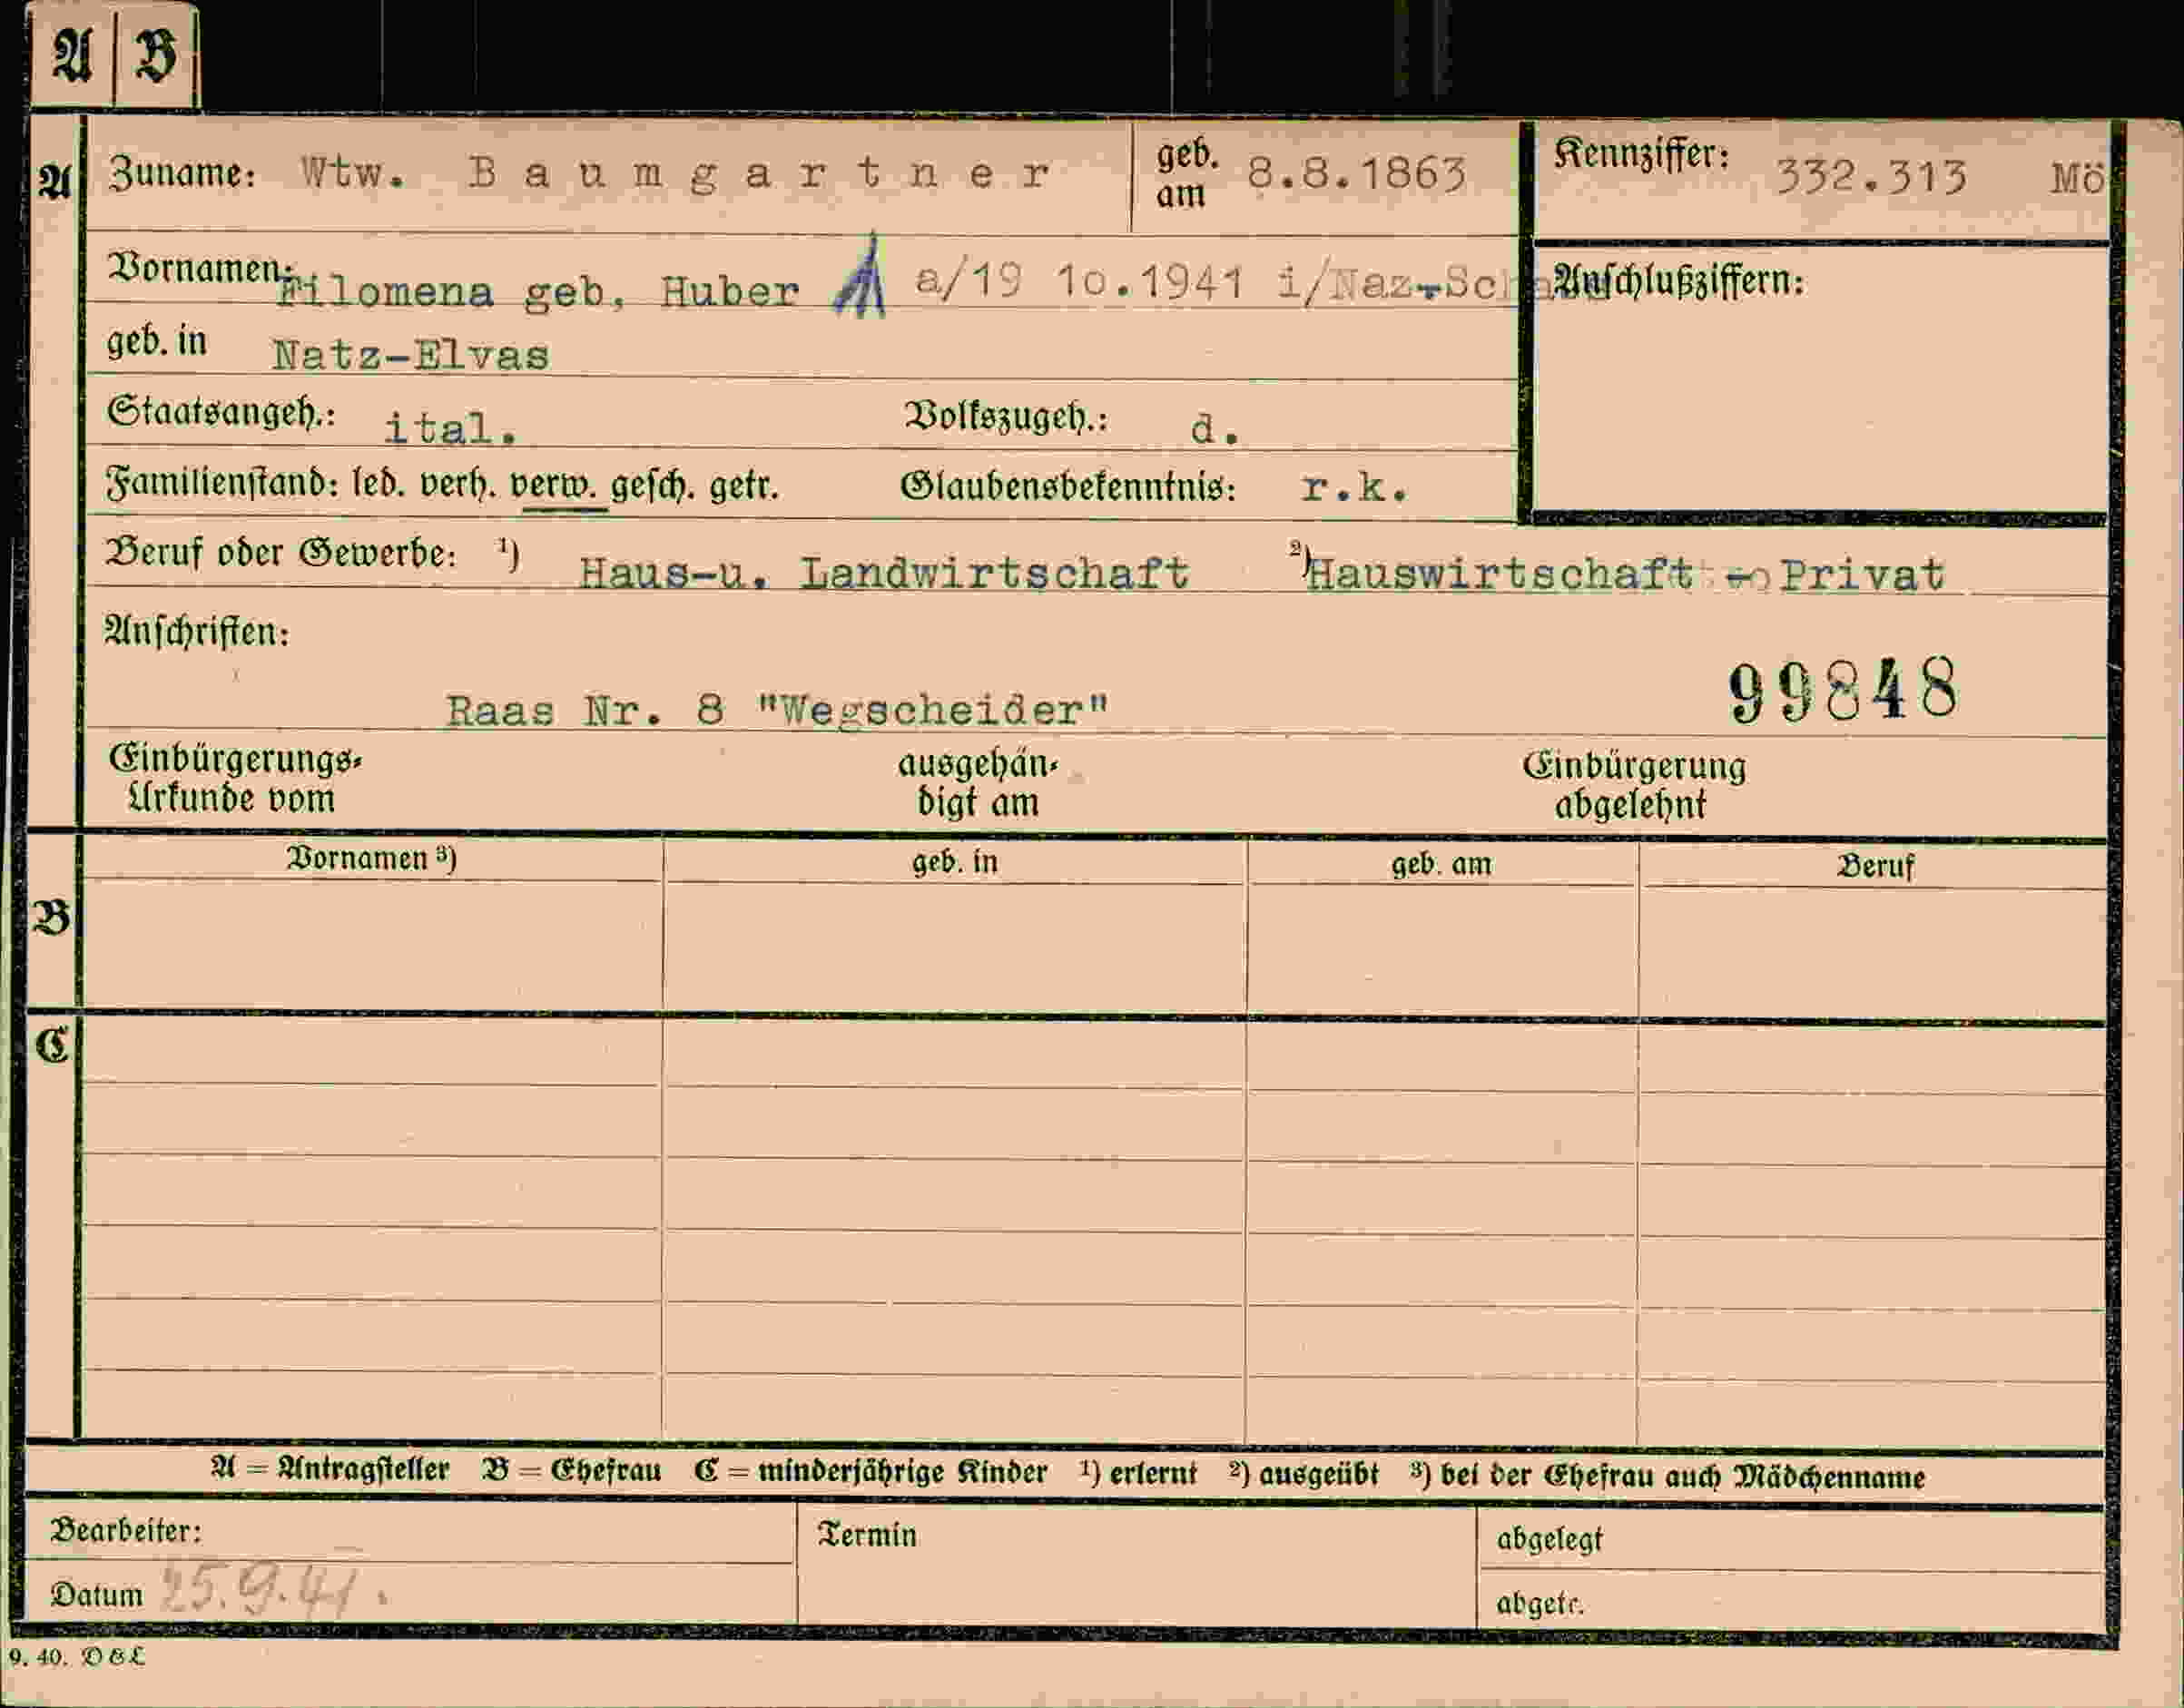 A B
A Zuname: Wtw. Baumgartner geb. am 8.8.1863 Kennziffer: 332.313 Mö
Vornamen: Filomena geb, Huber a/19 10.1941 i/Naz-Schabs Anschlußziffern:
geb. in Natz-Elvas
Staatsangeh.: ital. Volkszugeh.: d.
Familienstand: led. verh. verw. gesch. getr. Glaubensbekenntnis: r.k.
Beruf oder Gewerbe: 1) Haus-u. Landwirtschaft 2) Hauswirtschaft - Privat
Anschriften:
Raas Nr. 8 "Wegscheider" 99848
Einbürgerungs- ausgehän- Einbürgerung
Urkunde vom digt am abgelehnt
Vornamen 3) geb. in geb. am Beruf
B
C
A = Antragsteller B = Ehefrau C = minderjährige Kinder 1) erlernt 2) ausgeübt 3) bei der Ehefrau auch Mädchenname
Bearbeiter: Termin abgelegt
Datum 25.9.41. abgetr.
9. 40. D & L